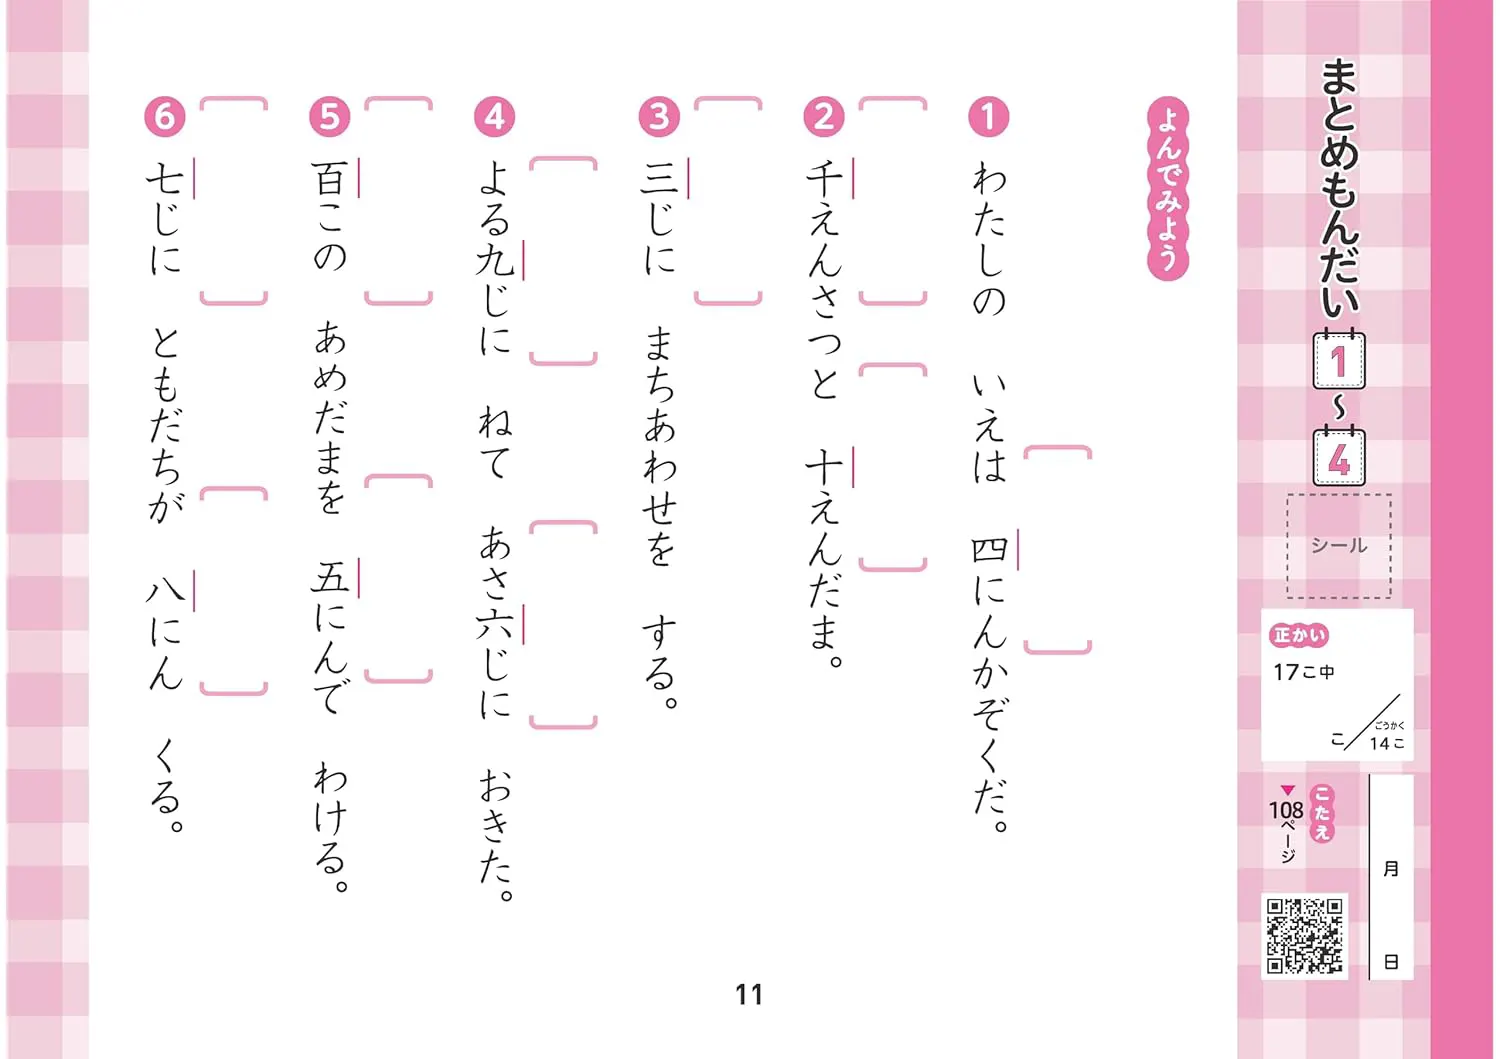 まとめもんだい 1〜4
シール
正かい
17こ中
こ/ごうかく 14こ
月 日
こたえ
▼108ページ
よんでみよう
1 わたしの いえは 四にんかぞくだ。
2 千えんさつと 十えんだま。
3 三じに まちあわせを する。
4 よる九じに ねて あさ六じに おきた。
5 百この あめだまを 五にんで わける。
6 七じに ともだちが 八にん くる。
11